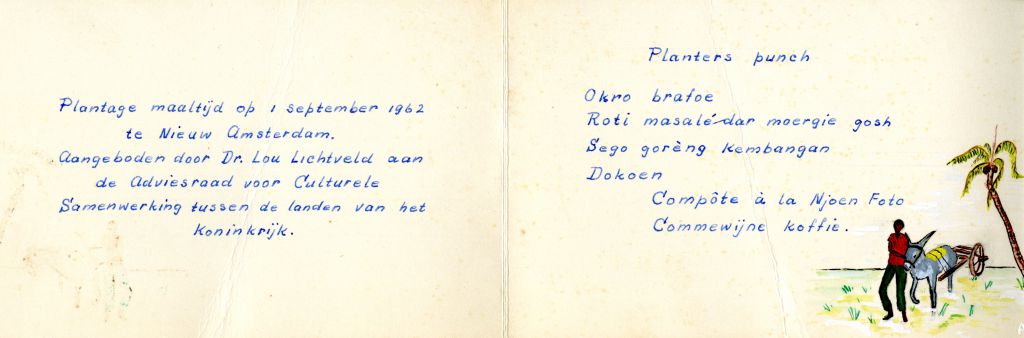 Plantage maaltijd op 1 september 1962
te Nieuw Amsterdam.
Aangeboden door Dr. Lou Lichtveld aan
de Adviesraad voor Culturele
Samenwerking tussen de landen van het
Koninkrijk.
Planters punch
Okro brafoe
Roti masalé dar moergie gosh
Sego gorèng Kembangan
Dokoen
Compôte à la Njoen Foto
Commewijne koffie.